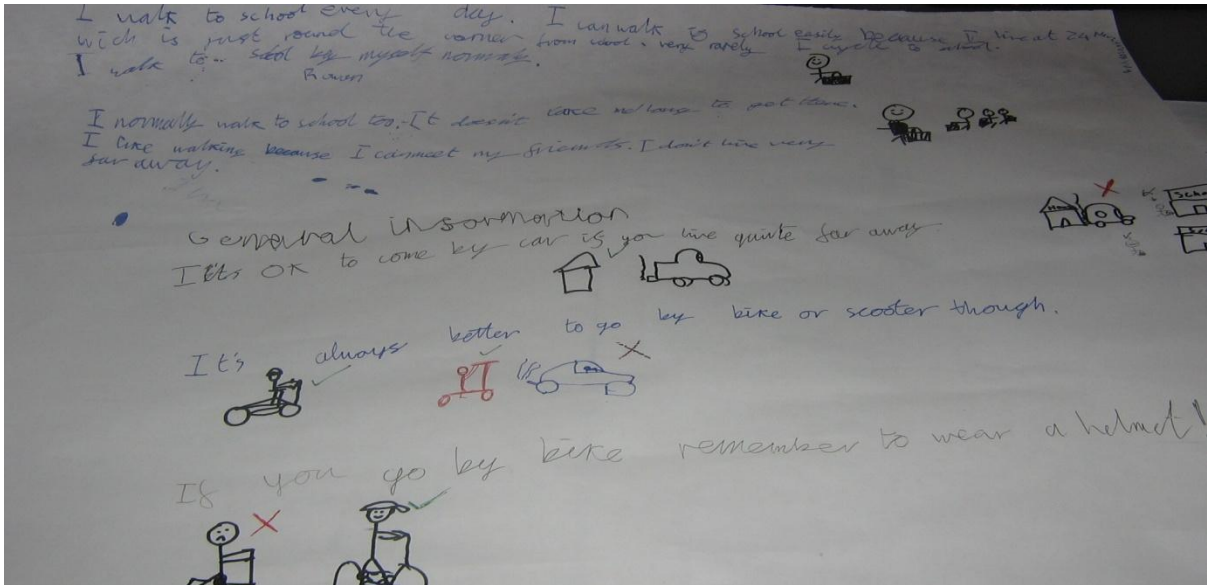 I walk to school every day. I can walk to school easily because I live at 24
wich is just round the corner from school. very rarely I cycle to school.
I walk to school by myself normaly.
Rowen
I normally walk to school too. It doesn't take me long to get there.
I like walking because I can meet my friends. I don't live very
far away.
General information
It's OK to come by car if you live quite far away.
It's always better to go by bike or scooter though.
If you go by bike remember to wear a helmet!